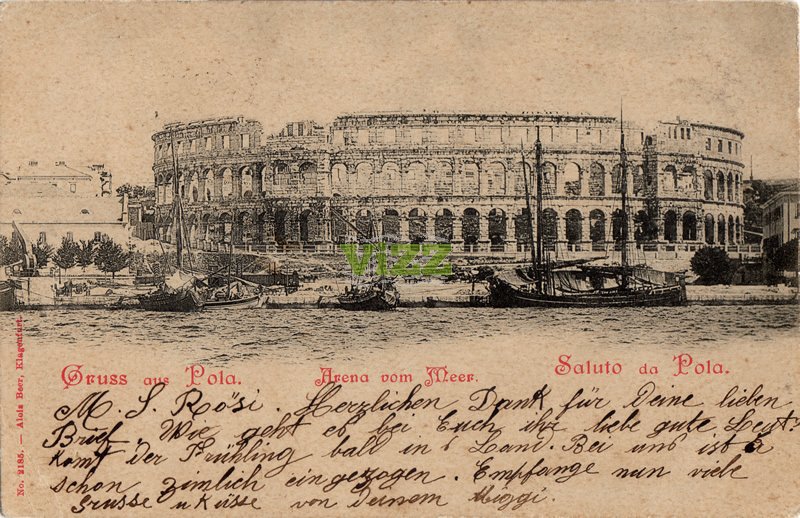 vizz
Gruss aus Pola.
Arena vom Meer.
Saluto da Pola.
No. 2185. — Alois Beer, Klagenfurt.
M. S. Rösi. Herzlichen Dank für Deine lieben
Brief. Wie geht es bei Euch ihr liebe gute Leut.
komt der Frühling bald in's Land. Bei uns ist
schon zimlich eingezogen. Empfange nun viele
Grüsse u Küsse von Deinem Miggi.